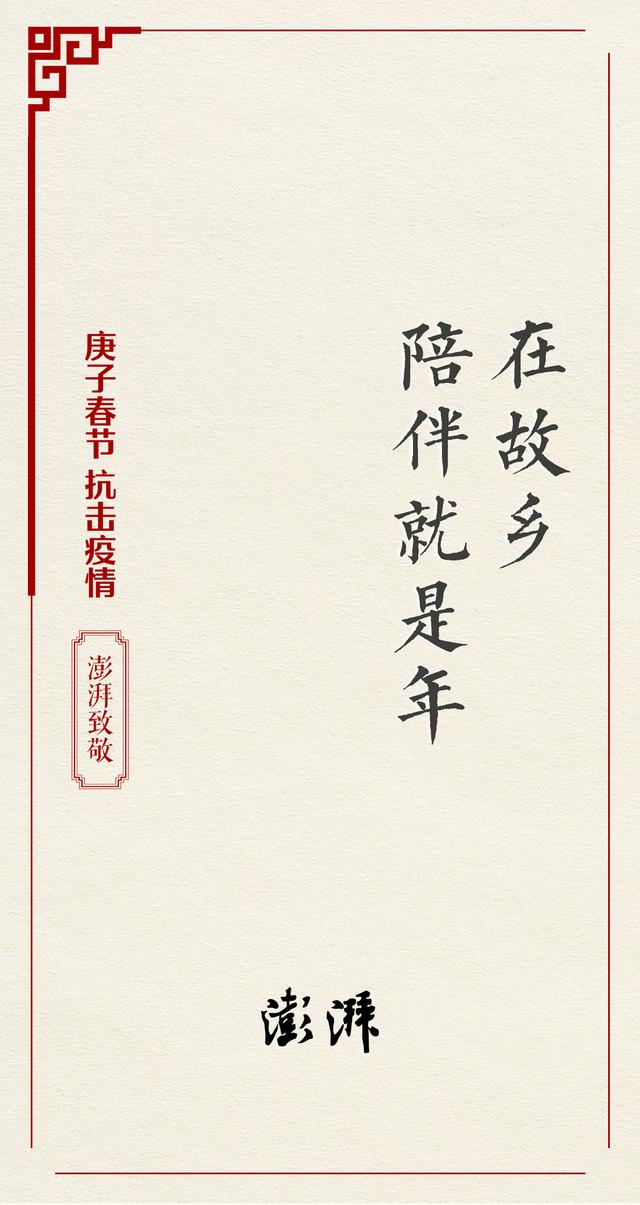 在故乡
陪伴就是年
庚子春节 抗击疫情
澎湃致敬
澎湃